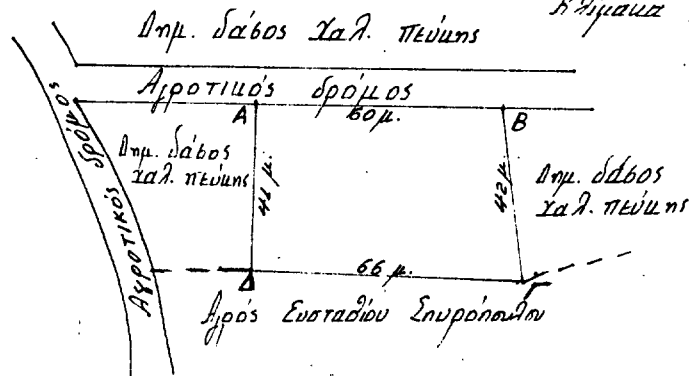 Κλίμακα
Δημ. δάσος χαλ. πεύκης
Αγροτικός δρόμος
Α
60μ.
Β
Αγροτικός δρόμος
Δημ. δάσος
χαλ. πεύκης
41 μ.
42 μ.
Δημ. δάσος
χαλ. πεύκης
66 μ.
Δ
Γ
Αγρός Ευσταθίου Σπυρόπουλου